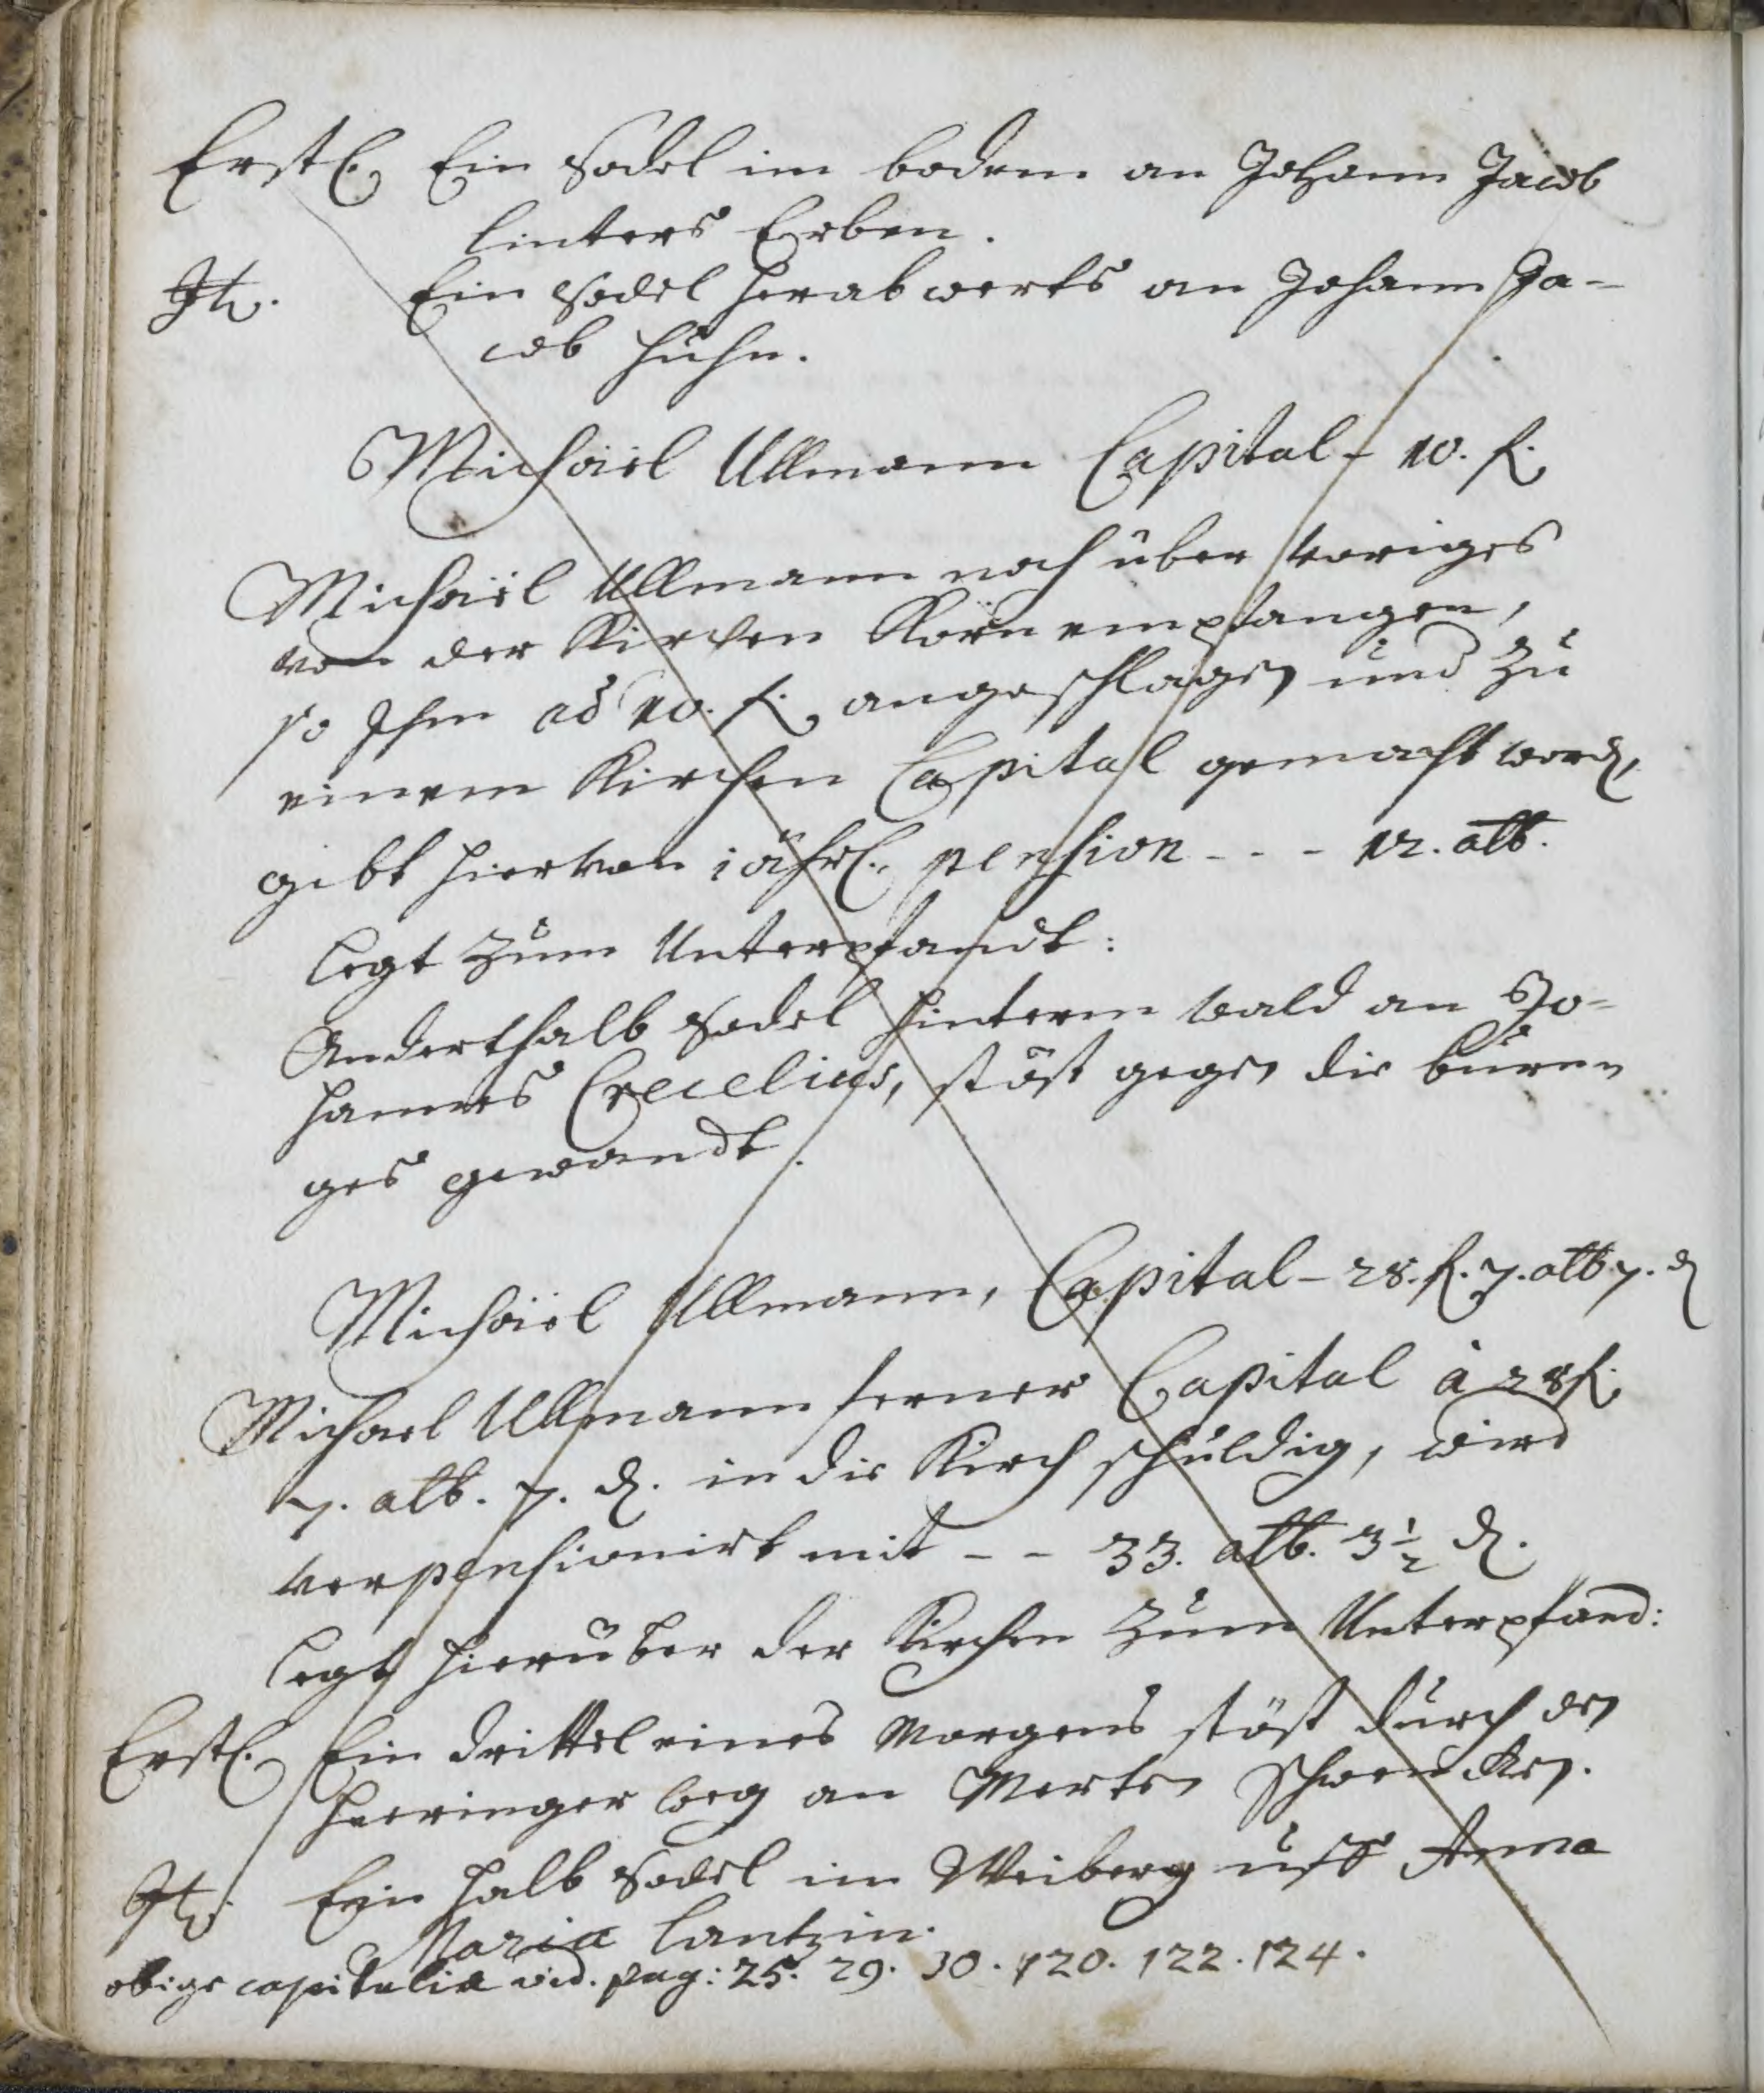 Erstl. Ein Sodel im boden an Johann Jacob
linters Erben.
It. Ein Sodel herabwerts an Johann Ja-
cob Huhn.
Michäel Ullmann Capital - 10. f.
Michäel Ullmann noch über voriges
von der Kirchen Korn empfangen,
so Ihm ad 10. f. angeschlagen und zu
einem Kirchen Capital gemacht word,
gibt hiervon jährl. pension - - - 12. alb.
legt zum Unterpfandt:
Anderthalb Sodel hinterm wald an Jo-
hannes Crecelius, stöst gegen die
ges gewandt.
Michäel Ullmann, Capital - 28. f. 7. alb 7. d
Michael Ullmann ferner Capital à 28 f.
7. alb. 7. d. in die Kirch schuldig, wird
verpensionirt mit - - 33. alb. 3 1/2 d.
legt hierüber der Kirchen zum Unterpfand:
Erstl. Ein drittel eines Morgens stöst durch den
weg an Merten Schwencken.
It. Ein halb Sodel im Weiberg uff Anna
Maria Lantzin.
obige capitalia vid. pag: 25. 29. 30. 120. 122. 124.